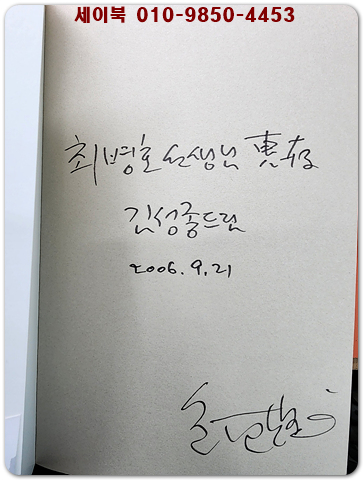 세이북 010-9850-4453
최병호 선생님 惠存
김성종드림
2006.9.21